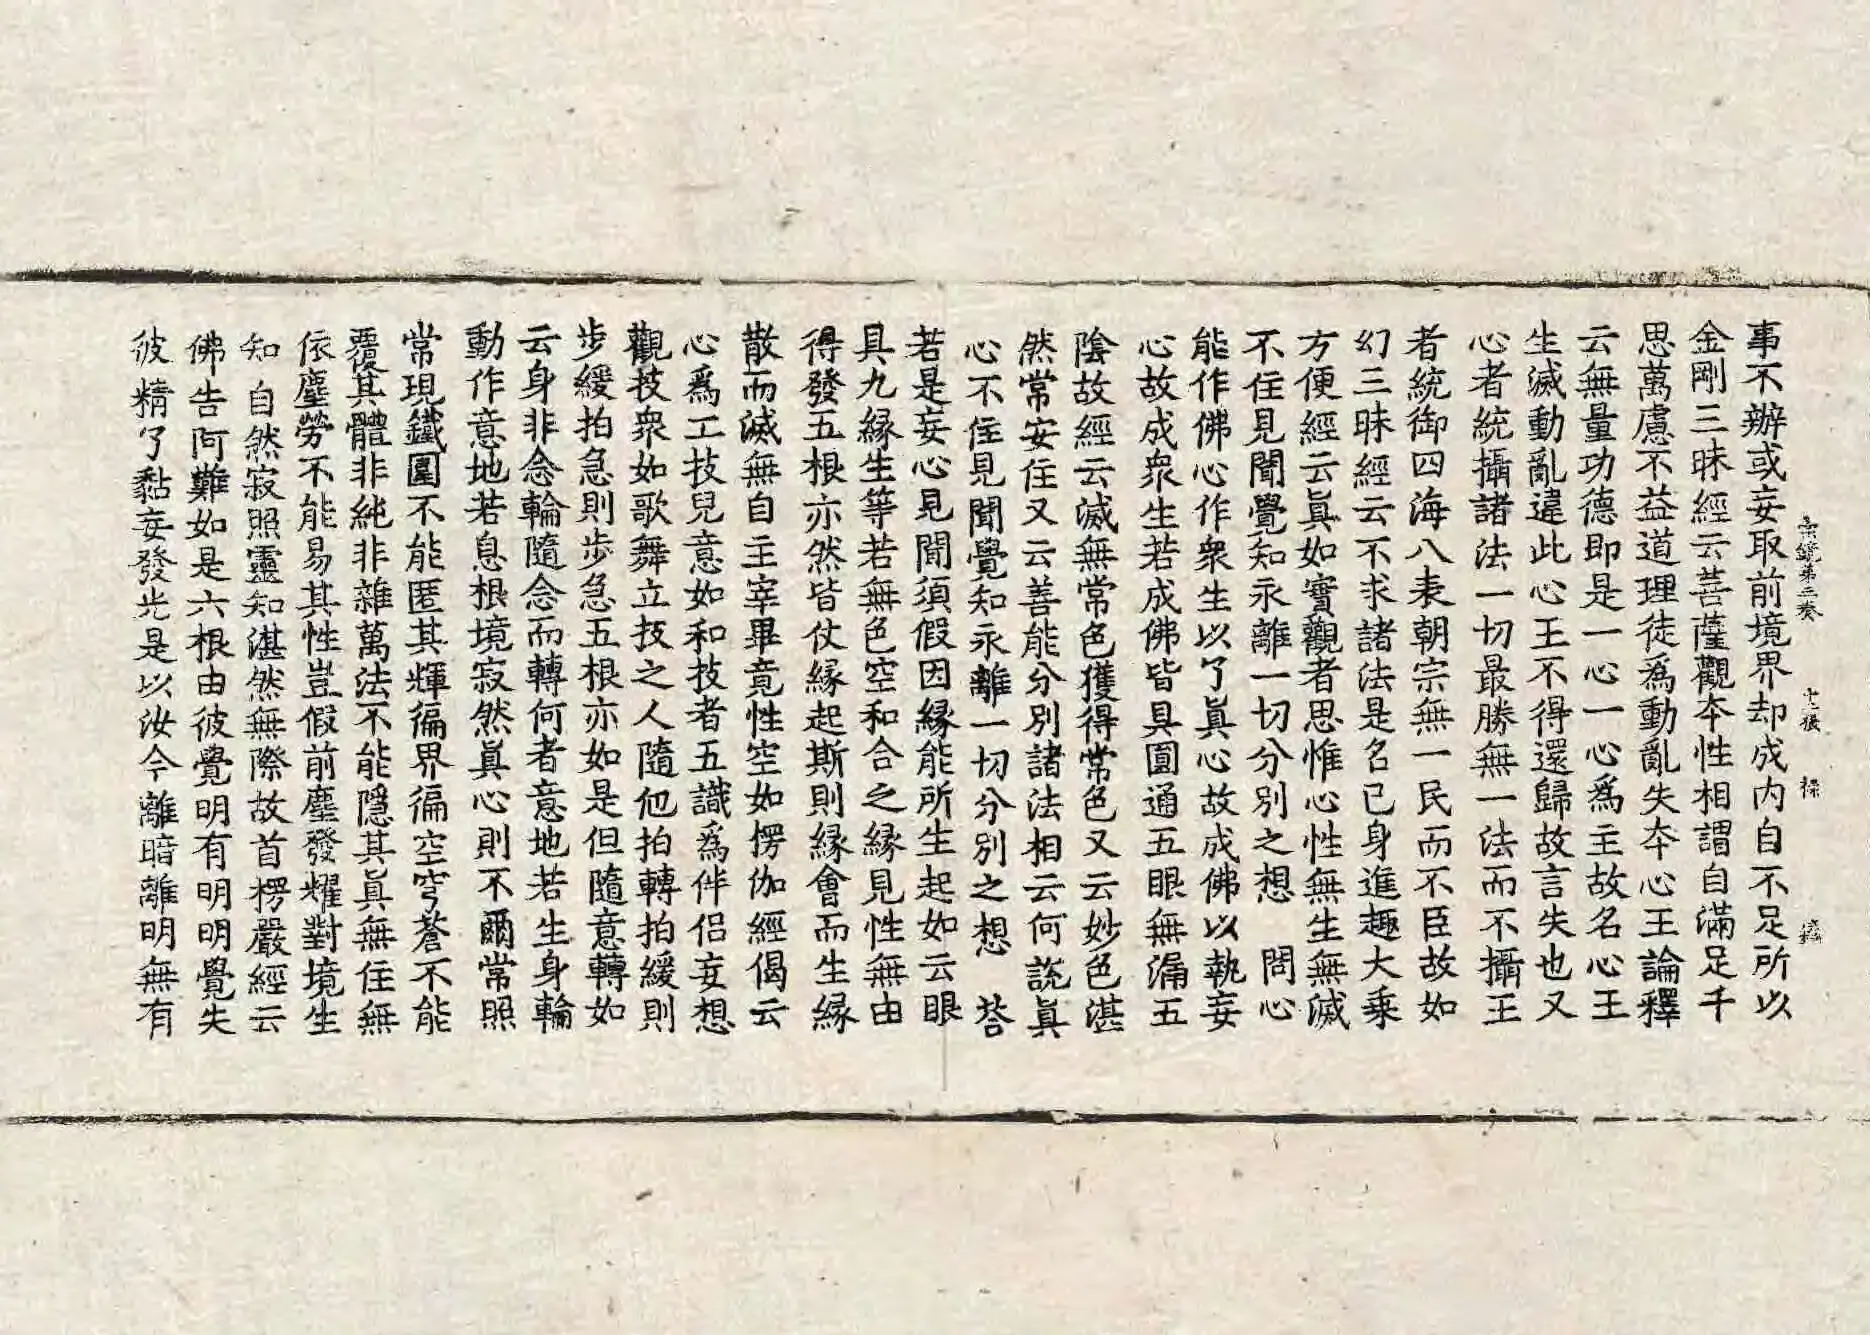 宗鏡第三卷 十七張 祿
事不辦或妄取前境界却成内自不足所以
金剛三昧經云菩薩觀本性相謂自滿足千
思萬慮不益道理徒爲動亂失本心王論釋
云無量功德即是一心一心爲主故名心王
生滅動亂違此心王不得還歸故言失也又
心者統攝諸法一切最勝無一法而不攝王
者統御四海八表朝宗無一民而不臣故如
幻三昧經云不求諸法是名已身進趣大乘
方便經云眞如實觀者思惟心性無生無滅
不住見聞覺知永離一切分別之想 問心
能作佛心作衆生以了眞心故成佛以執妄
心故成衆生若成佛皆具圓通五眼無漏五
陰故經云滅無常色獲得常色又云妙色湛
然常安住又云善能分別諸法相云何說眞
心不住見聞覺知永離一切分別之想 荅
若是妄心見聞須假因緣能所生起如云眼
具九緣生等若無色空和合之緣見性無由
得發五根亦然皆仗緣起斯則緣會而生緣
散而滅無自主宰畢竟性空如楞伽經偈云
心爲工技兒意如和技者五識爲伴侣妄想
觀技衆如歌舞立技之人隨他拍轉拍緩則
步緩拍急則步急五根亦如是但隨意轉如
云身非念輪隨念而轉何者意地若生身輪
動作意地若息根境寂然眞心則不爾常照
常現鐵圍不能匿其輝徧界徧空穹蒼不能
覆其體非純非雜萬法不能隱其眞無住無
依塵勞不能易其性豈假前塵發耀對境生
知自然寂照靈知湛然無際故首楞嚴經云
佛告阿難如是六根由彼覺明有明明覺失
彼精了黏妄發光是以汝今離暗離明無有